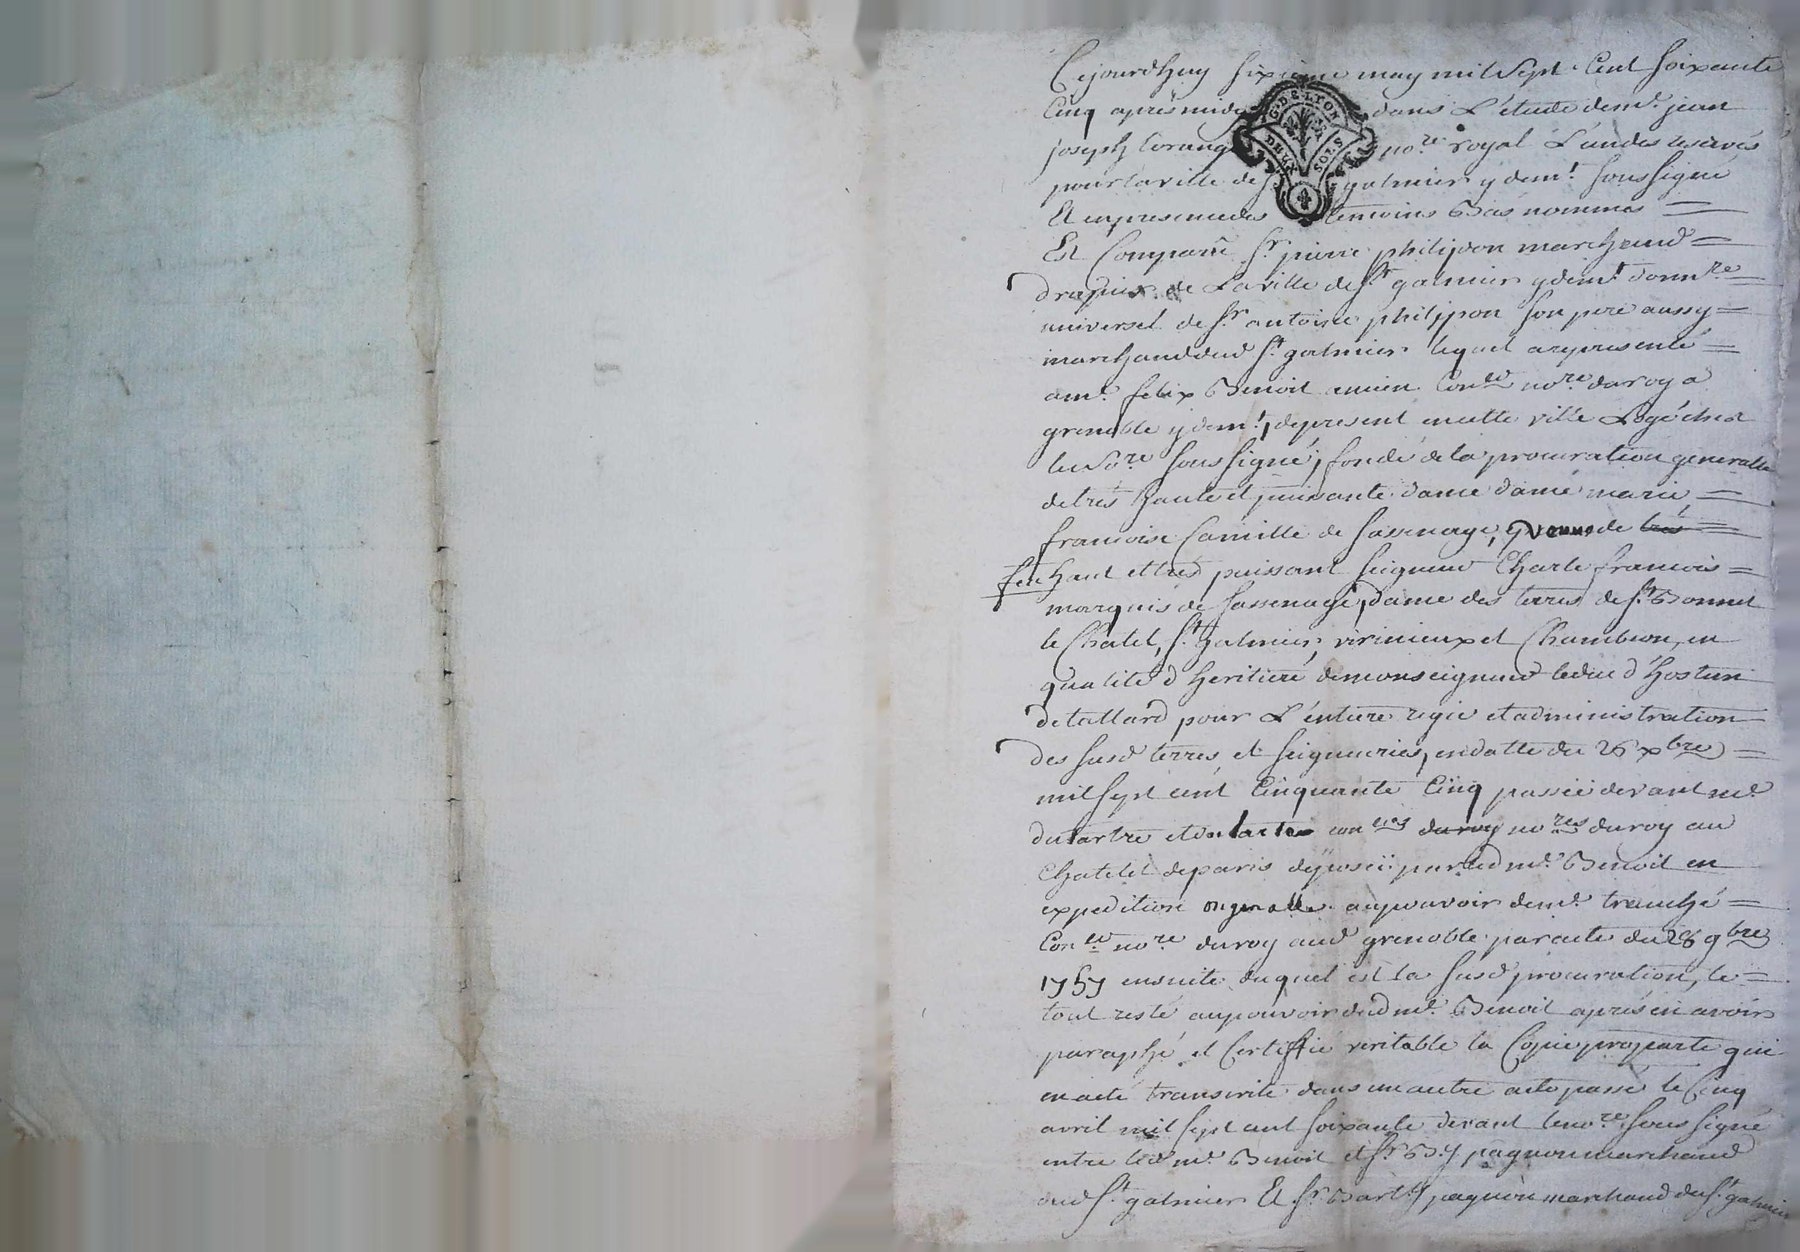 Cejourdhuy sixieme may mil sept Cent soixante
Cinq aprés midy dans L'étude de me. jean
joseph no.re royal
pour la ville de st galmier y demt. soussigné
Et en presence des temoins Bas nommés
G. DE LYON
DEUX SOLS
Est Comparû Sr. pierre philipon marchand
drapier de La ville de st galmier y demt. donnre
universel de sr antoine philippon son pere aussy
marchand dud st. galmier lequel a represente
a me. felix Benoit ancien Coner no.re du roy a
grenoble y demt., de present en cette ville Logé chez
le no.re soussigné, fondé de la procuration generalle
de très haute et puissante dame dame marie
francoise Camille de Sassenage, veuve de très
feu haut et très puissant seigneur Charle francois
marquis de Sassenage, dame des terres de st Bonnet
le Chatel, st. galmier, virinieux et Chambeon, en
qualité d'heritiere de monseigneur le duc d'hostun
de tallard pour L'entiere regie et administration
des susd terres et seigneuries, en datte du 26 xbre
mil sept cent Cinquante Cinq passée devant me.
dutartre et coners du roy no.res du roy au
Chatelet de paris deposée par led me. Benoit en
expedition originalle au pouvoir de me. tranché
Coner no.re du roy aud grenoble par acte du 26 9bre
1757 ensuite duquel est la susd procuration, le
tout resté au pouvoir dud me. Benoit aprés en avoir
paraphé et Certiffié veritable la Copie
en a eté transcrite dans un autre acte passé le Cinq
avril mil sept cent soixante devant le no.re soussigné
entre led me. Benoit et sr pagnon marchand
aud st. galmier Et sr. Bart.y pagnon marchand du st. galmier